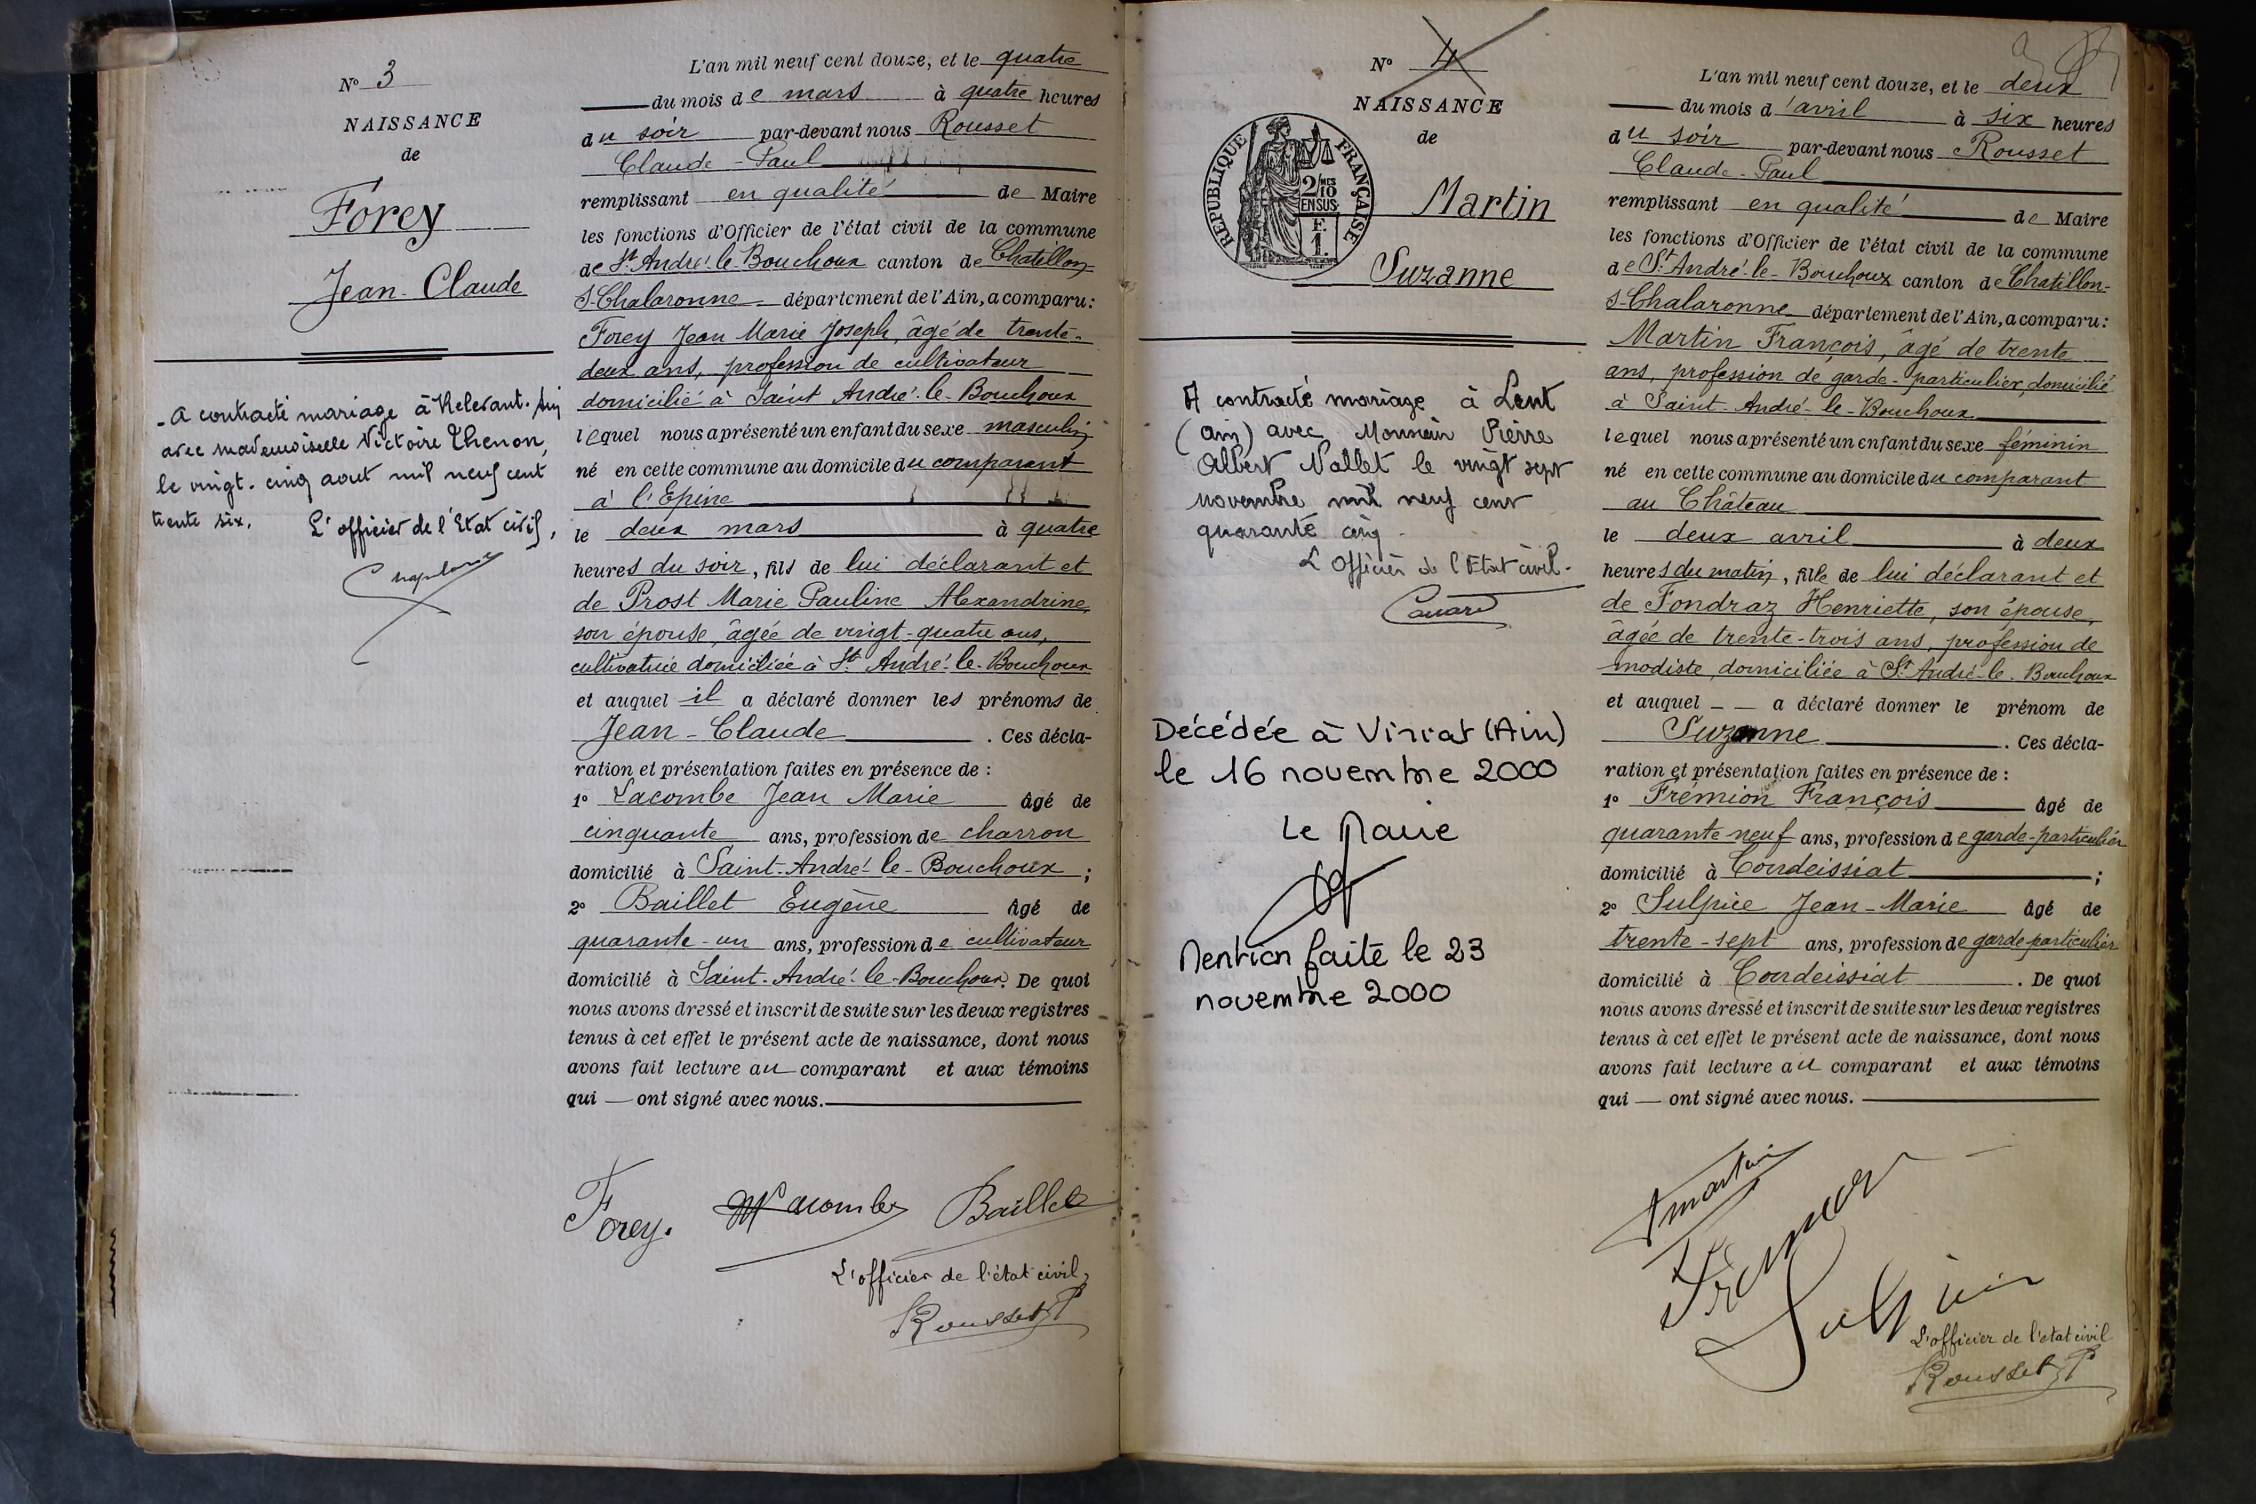 N° 3
NAISSANCE
de
Forey
Jean-Claude
- a contracté mariage à Relevant. Ain
avec mademoiselle Victoire Thenon,
le vingt-cinq aout mil neuf cent
trente six.
L'officier de l'Etat civil,
L'an mil neuf cent douze, et le quatre
du mois de mars à quatre heures
du soir par-devant nous Rousset
Claude-Paul
remplissant en qualité de Maire
les fonctions d'Officier de l'état civil de la commune
de St André-le-Bouchoux canton de Chatillon-
s-Chalaronne département de l'Ain, a comparu:
Forey Jean Marie Joseph, âgé de trente-
deux ans, profession de cultivateur
domicilié à Saint André-le-Bouchoux
lequel nous a présenté un enfant du sexe masculin
né en cette commune au domicile du comparant
à l'Epine
le deux mars à quatre
heures du soir, fils de lui déclarant et
de Prost Marie Pauline Alexandrine,
son épouse, âgée de vingt-quatre ans,
cultivatrice domiciliée à St André-le-Bouchoux
et auquel il a déclaré donner les prénoms de
Jean-Claude. Ces décla-
ration et présentation faites en présence de :
1° Lacombe Jean Marie âgé de
cinquante ans, profession de charron
domicilié à Saint-André-le-Bouchoux ;
2° Baillet Eugène âgé de
quarante-un ans, profession de cultivateur
domicilié à Saint-André-le-Bouchoux. De quoi
nous avons dressé et inscrit de suite sur les deux registres
tenus à cet effet le présent acte de naissance, dont nous
avons fait lecture au comparant et aux témoins
qui — ont signé avec nous.
Forey. Lacombe Baillet
L'officier de l'état civil,
Rousset P
N° 4
NAISSANCE
de
REPUBLIQUE FRANÇAISE
2/10MES
EN SUS
F.
1.
Martin
Suzanne
A contracté mariage à Lent
(Ain) avec Monsieur Pierre
Albert Vallet le vingt sept
novembre mil neuf cent
quarante cinq.
L'Officier de l'Etat civil.
Décédée à Viriat (Ain)
le 16 novembre 2000
Le Maire
Mention faite le 23
novembre 2000
L'an mil neuf cent douze, et le deux
du mois d'avril à six heures
du soir par-devant nous Rousset
Claude-Paul
remplissant en qualité de Maire
les fonctions d'Officier de l'état civil de la commune
de St André-le-Bouchoux canton de Chatillon-
s-Chalaronne département de l'Ain, a comparu:
Martin François, âgé de trente
ans, profession de garde-particulier, domicilié
à Saint-André-le-Bouchoux
lequel nous a présenté un enfant du sexe féminin
né en cette commune au domicile du comparant
au Château
le deux avril à deux
heures du matin, fille de lui déclarant et
de Fondraz Henriette, son épouse,
âgée de trente-trois ans, profession de
modiste, domiciliée à St André-le-Bouchoux
et auquel — — a déclaré donner le prénom de
Suzanne. Ces décla-
ration et présentation faites en présence de :
1° Frémion François âgé de
quarante-neuf ans, profession de garde-particulier
domicilié à Condeissiat ;
2° Sulpice Jean-Marie âgé de
trente-sept ans, profession de garde particulier
domicilié à Condeissiat. De quoi
nous avons dressé et inscrit de suite sur les deux registres
tenus à cet effet le présent acte de naissance, dont nous
avons fait lecture au comparant et aux témoins
qui — ont signé avec nous.
Fmartin
Frémion
Sulpice
L'officier de l'état civil
Rousset P